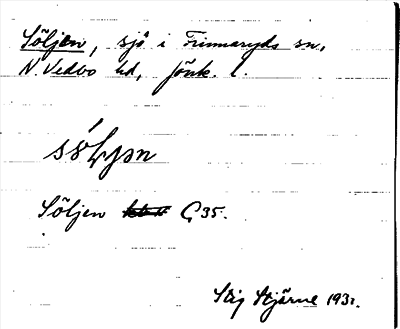 Söljen, sjö i Finnaryds sn,
N. Vedbo hd, Jönk. l.
Söljen C 35.
Stig Stjärne 193